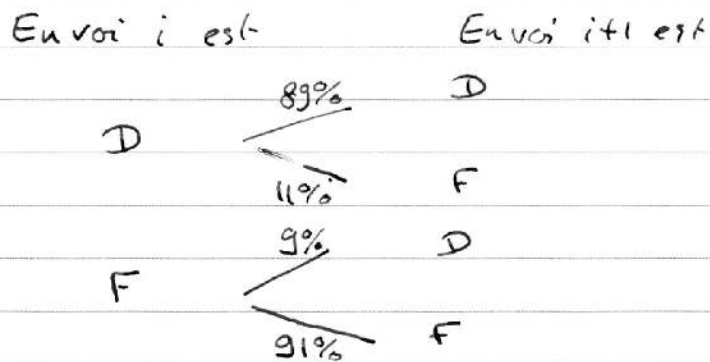 Envoi i est
Envoi i+1 est
89%
D
D
11%
F
9%
D
F
91%
F